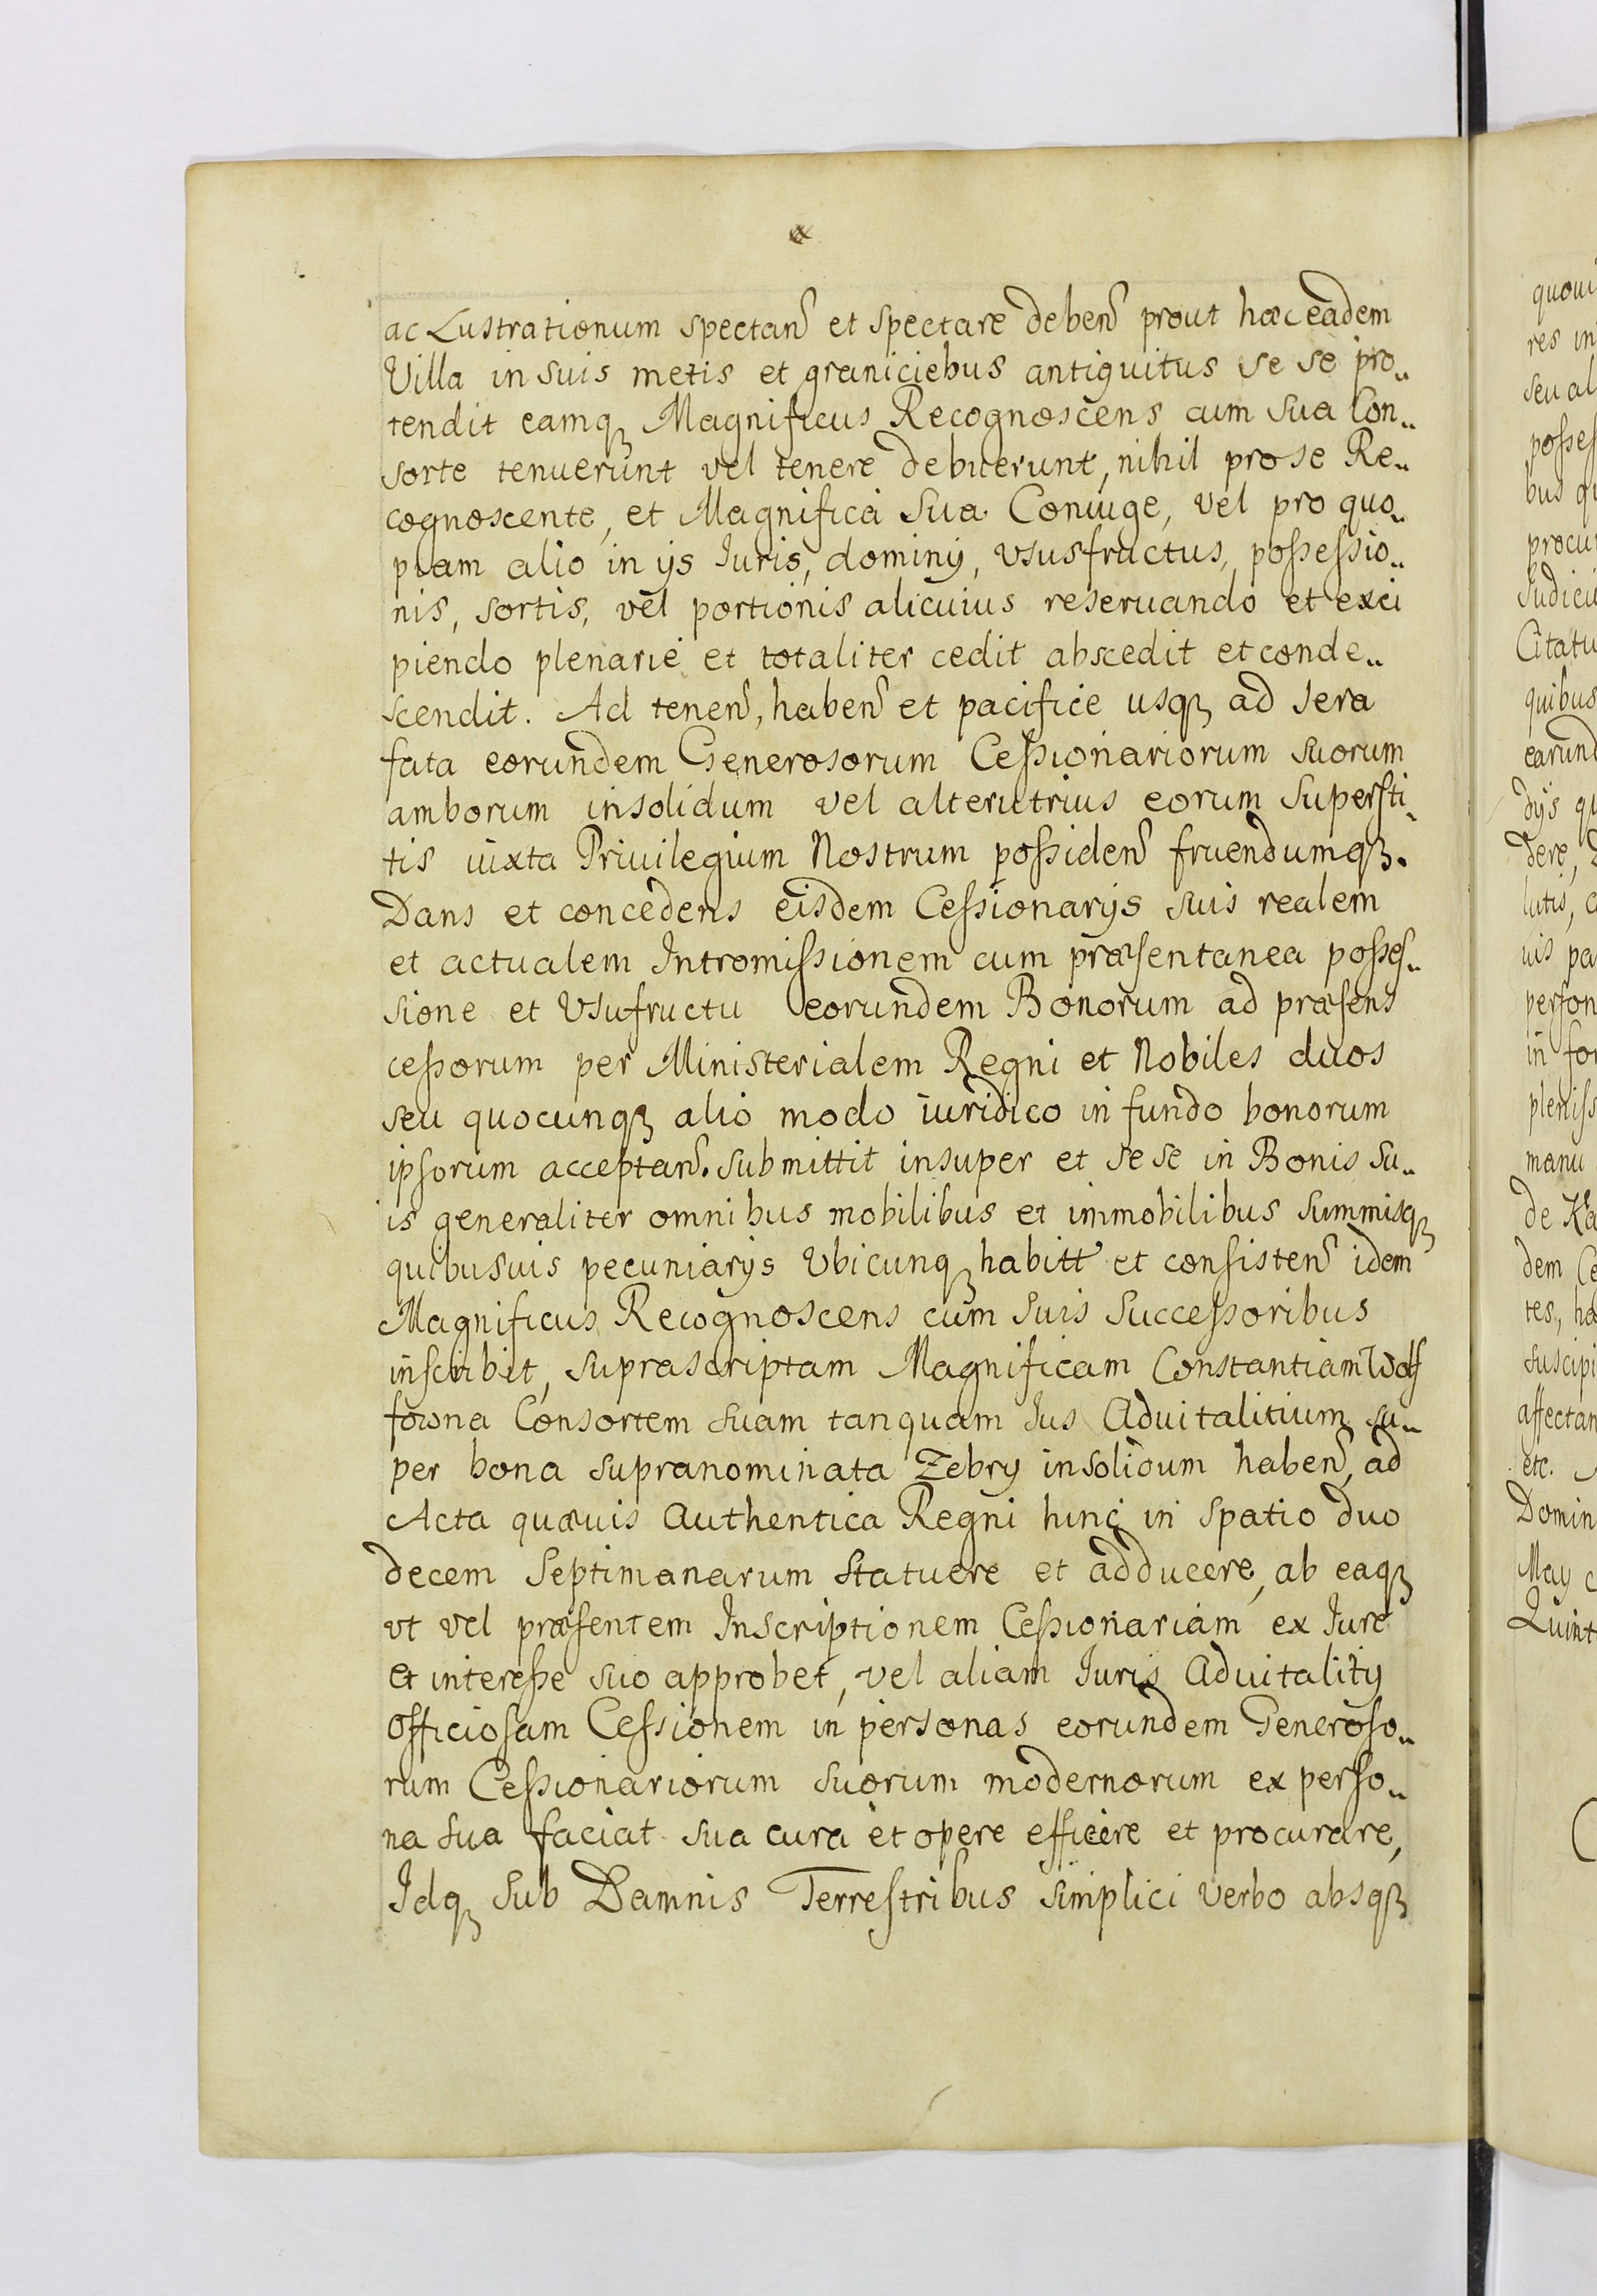 ac Lustrationum spectan̄ et spectare deben̄ prout hæc eadem
Villa in suis metis et graniciebus antiquitus se se pro„
tendit eamq₃ Magnificus Recognoscens cum sua Con„
sorte tenuerunt vel tenere debuerunt, nihil pro se Re„
cognoscente, et Magnifica sua Coniuge, vel pro quo„
piam alio in ijs Iuris, dominij, vsusfructus, possessio„
nis, sortis, vel portionis alicuius reseruando et exci
piendo plenarie et totaliter cedit abscedit et conde„
scendit. Ad tenen̄, haben̄ et pacifice usq₃ ad sera
fata eorundem Generosorum Cessionariorum suorum
amborum insolidum vel alterutrius eorum Supersti„
tis iuxta Priuilegium Nostrum possiden̄ fruendumq₃.
Dans et concedens eisdem Cessionarijs suis realem
et actualem Intromissionem cum præsentanea posses„
sione et Vsufructu eorundem Bonorum ad præsens
cessorum per Ministerialem Regni et Nobiles duos
seu quocunq₃ alio modo iuridico in fundo bonorum
ipsorum acceptan̄. Submittit insuper et sese in Bonis su„
is generaliter omnibus mobilibus et immobilibus summisq₃
quibusuis pecuniarijs Vbicunq₃ habitt et consisten̄ idem
Magnificus Recognoscens cum suis Successoribus
inscribit, suprascriptam Magnificam Constantiam Wolf
fowna Consortem suam tanquam Ius Aduitalitium su„
per bona supranominata Zebry insolidum haben̄, ad
Acta quæuis Authentica Regni hinc in spatio duo
decem Septimanarum statuere et adducere, ab eaq₃
vt vel præsentem Inscriptionem Cessionariam ex Iure
et interesse suo approbet, vel aliam Iuris Aduitalitij
officiosam Cessionem in personas eorundem Generoso„
rum Cessionariorum suorum modernorum ex perso„
na sua faciat sua cura et opere efficere et procurare,
Idq₃ sub Damnis Terrestribus simplici verbo absq₃